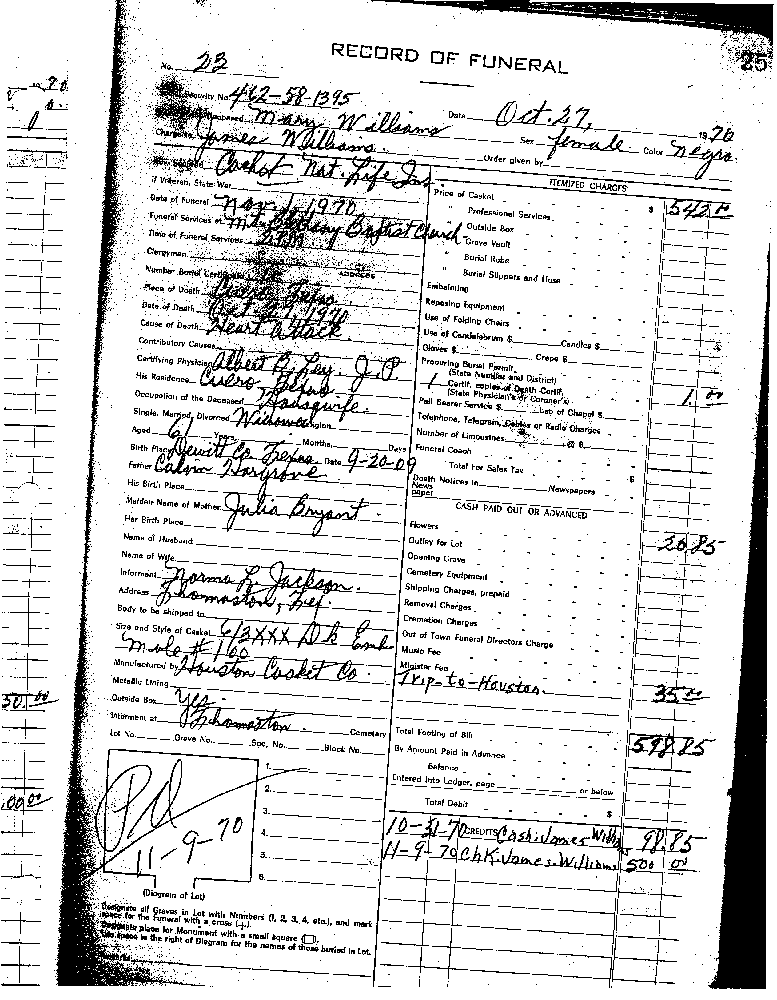 RECORD OF FUNERAL
25
No. 23
Security No. 462-58-1395
Date Oct. 27, 1970
Mary Williams
Sex female Color Negro
Charge to James Williams
Order given by
Nat. Life Ins.
If Veteran, State War
Date of Funeral Nov. 1, 1970
Funeral Services at Mt. Bethany Baptist Church
Time of Funeral Services
Clergyman
ADDRESS
Number Burial Certificate
Place of Death Cuero, Texas
Date of Death Oct 27, 1970
Cause of Death Heart Attack
Contributory Causes
Certifying Physician Albert B. Ley. J.P.
His Residence Cuero, Texas
Occupation of the Deceased Housewife.
Single, Married, Divorced Widowed Religion
Aged 61 Years Months Days
Birth Place Dewitt Co. Texas Date 9-20-09
Father Calvin Hargrove
His Birth Place
Maiden Name of Mother Julia Bryant.
Her Birth Place
Name of Husband
Name of Wife
Informant Norma L. Jackson.
Address Thomaston, Tex.
Body to be shipped to
Size and Style of Casket 6/3XXX Dk Emb
Mole # 1100
Manufactured by Houston Casket Co
Metallic Lining
Outside Box Yes.
Interment at Thomaston. Cemetery
Lot No. Grave No. Sec. No. Block No.
1.
2.
3.
4.
5.
6.
Pd
11-9-70
(Diagram of Lot)
Designate all Graves in Lot with Numbers (1, 2, 3, 4, etc.), and mark
space for the Funeral with a cross (+).
Designate place for Monument with a small square (□).
Use space in the right of Diagram for the names of those buried in Lot.
Remarks
ITEMIZED CHARGES
Price of Casket $ 542.00
" Professional Services
" Outside Box
" Grave Vault
" Burial Robe
" Burial Slippers and Hose
Embalming
Reposing Equipment
Use of Folding Chairs
Use of Candelabrum $ Candles $
Gloves $ Crepe $
Procuring Burial Permit
(State Number and District)
1 Certif. copies of Death Certif.
(State Physician's or Coroner's) 1.00
Pall Bearer Service $ Use of Chapel $
Telephone, Telegram, Cables or Radio Charges
Number of Limousines @ $
Funeral Coach
Total For Sales Tax $
Death Notices in Newspapers
News
paper
CASH PAID OUT OR ADVANCED
Flowers
Outlay for Lot 20.85
Opening Grave
Cemetery Equipment
Shipping Charges, prepaid
Removal Charges
Cremation Charges
Out of Town Funeral Directors Charge
Music Fee
Minister Fee
Trip-to-Houston. 35.00
Total Footing of Bill 598.85
By Amount Paid in Advance
Balance
Entered into Ledger, page or below
Total Debit $
10-31-70 CREDITS Cash James Williams 98.85
11-9-70 Chk. James Williams 500 00
50.00
.00 00